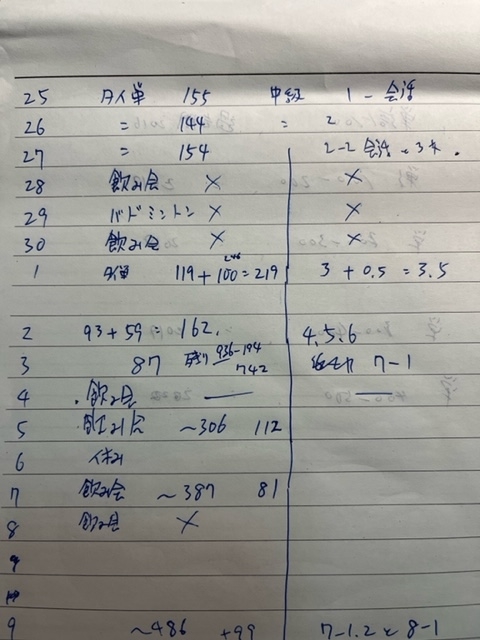 25 タイ単 155 中級 1 - 会話
26 = 144 = 2
27 = 154 2-2 会話 と 3 .
28 飲み会 × ×
29 バドミントン × ×
30 飲み会 × ×
1 タイ単 119 + 100 = 219 3 + 0.5 = 3.5
2 93 + 59 = 162. 4.5.6
3 87 残り 936-194 7-1
742
4 . 飲み会 — —
5 飲み会 ~306 112
6 休み
7 飲み会 ~387 81
8 飲み会 ×
9 ~486 +99 7-1.2 と 8-1